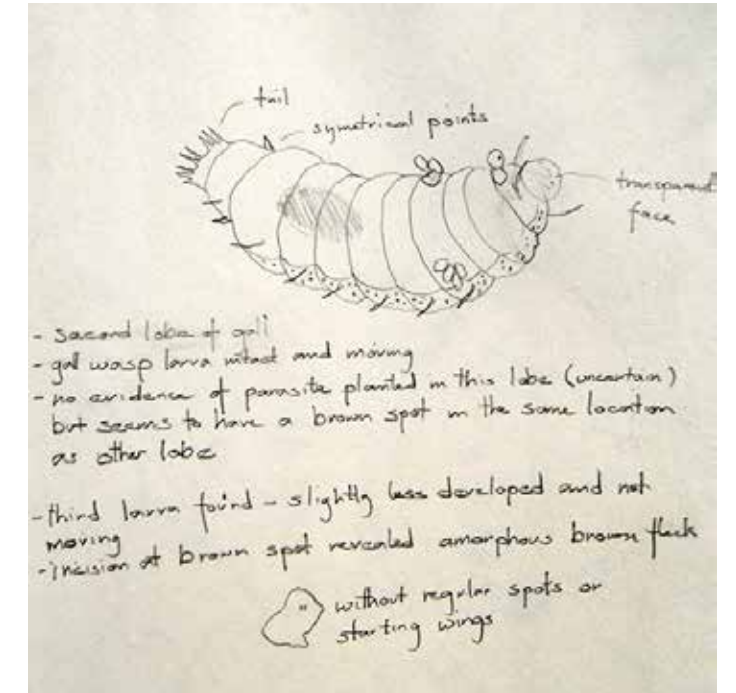 tail
symetrical points
transparent
face
- second lobe of gall
- gall wasp larva intact and moving
- no evidence of parasite planted in this lobe (uncertain)
but seems to have a brown spot in the same location
as other lobe
- third larva found - slightly less developed and not
moving
- incision at brown spot revealed amorphous brown fleck
without regular spots or
starting wings